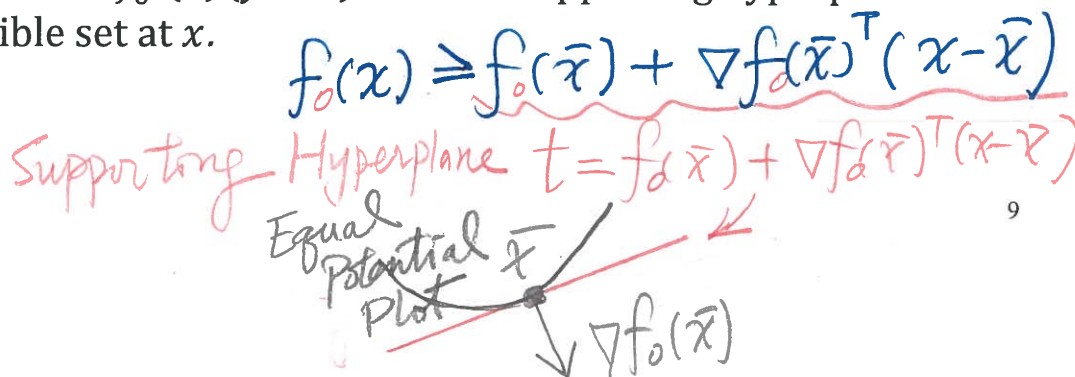 ible set at x.
f₀(x) ≥ f₀(x̄) + ∇f₀(x̄)ᵀ(x-x̄)
Supporting Hyperplane t = f₀(x̄) + ∇f₀(x̄)ᵀ(x-x̄)
9
Equal
Potential
Plot
x̄
∇f₀(x̄)